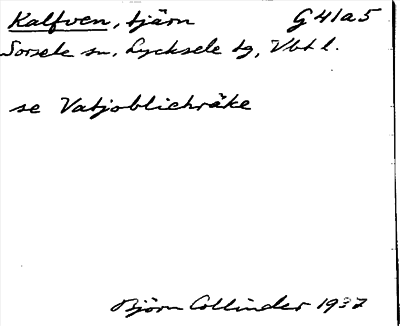 Kalfven, tjärn G41a5
Sorsele sn, Lycksele tg, Vbt l.
se Vatjoblichräke
Björn Collinder 1937